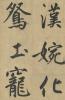 化寵
婉士
漢鴛